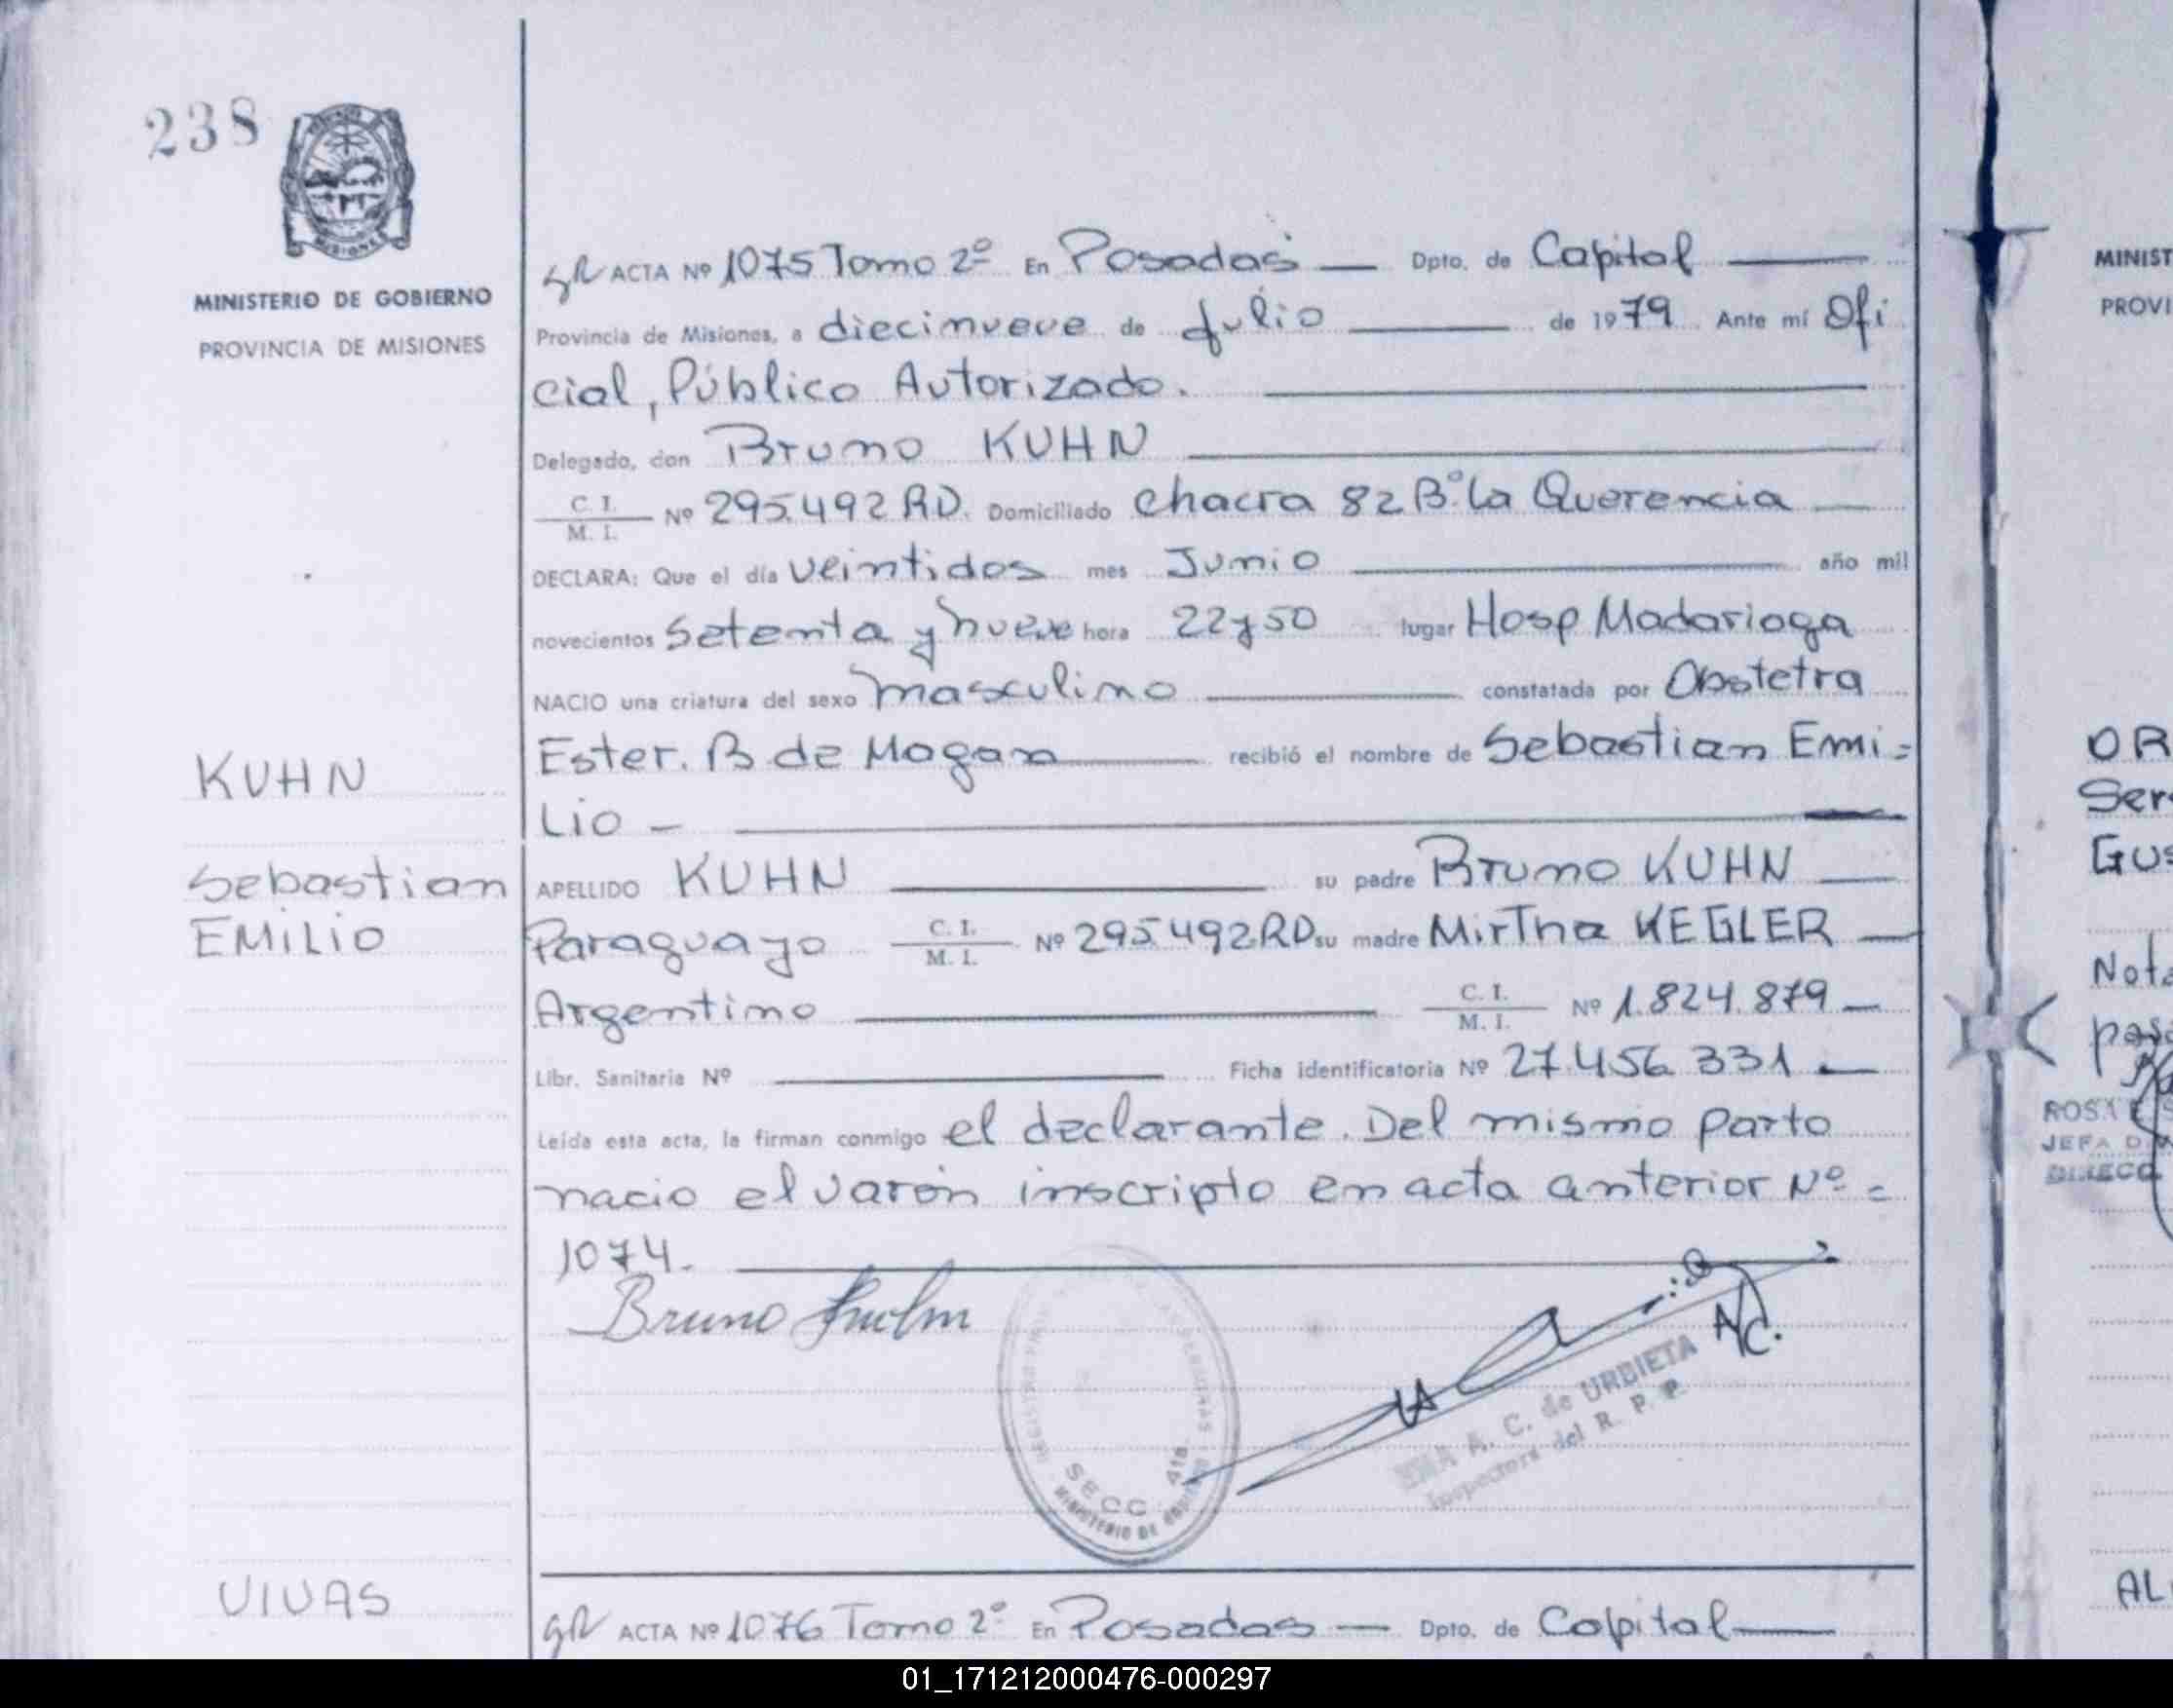 238
MINISTERIO DE GOBIERNO
PROVINCIA DE MISIONES
ACTA Nº 1075 Tomo 2º En Posadas — Dpto. de Capital —
Provincia de Misiones, a diecinueve de Julio — de 1979 Ante mí Ofi
cial, Público Autorizado. —
Delegado, don Bruno KUHN —
C. I. / M. I. Nº 295.492 RD. Domiciliado Chacra 82 Bº La Querencia —
DECLARA: Que el día Veintidos mes Junio — año mil
novecientos Setenta y nueve hora 22 y 50 lugar Hosp Madariaga
NACIO una criatura del sexo masculino — constatada por Obstetra
Ester. B de — recibió el nombre de Sebastian Emi=
Lio —
APELLIDO KUHN — su padre Bruno KUHN —
Paraguayo C. I. / M. I. Nº 295.492RD su madre MirTha KEGLER —
Argentino — C. I. / M. I. Nº 1.824.879 —
Libr. Sanitaria Nº — Ficha identificatoria Nº 27.456.331 —
Leída esta acta, la firman conmigo el declarante. Del mismo parto
nacio el varón inscripto en acta anterior Nº =
1074. —
Bruno Kuhn
A/C.
A. C. de URBIETA
Inspectora del R. P. P.
SECC. 4ta
MINISTERIO DE
KUHN
Sebastian
EMILIO
VIVAS
ACTA Nº 1076 Tomo 2º En Posadas — Dpto. de Capital —
MINIST
PROVI
OR
Ser
Gus
Nota
ROSA
JEFA D
DIRECC
AL
01_171212000476-000297